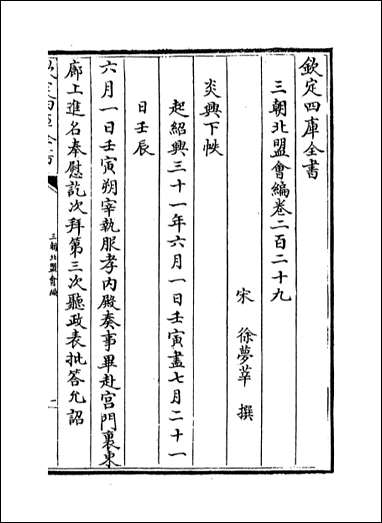 欽定四庫全書
三朝北盟會編卷二百二十九
宋　徐夢莘　撰
炎興下帙
起紹興三十一年六月一日壬寅盡七月二十一
日壬辰
六月一日壬寅朔宰執服孝內殿奏事畢赴宮門裏東
廊上進名奉慰訖次拜第三次聽政表批答允詔
三朝北盟會編